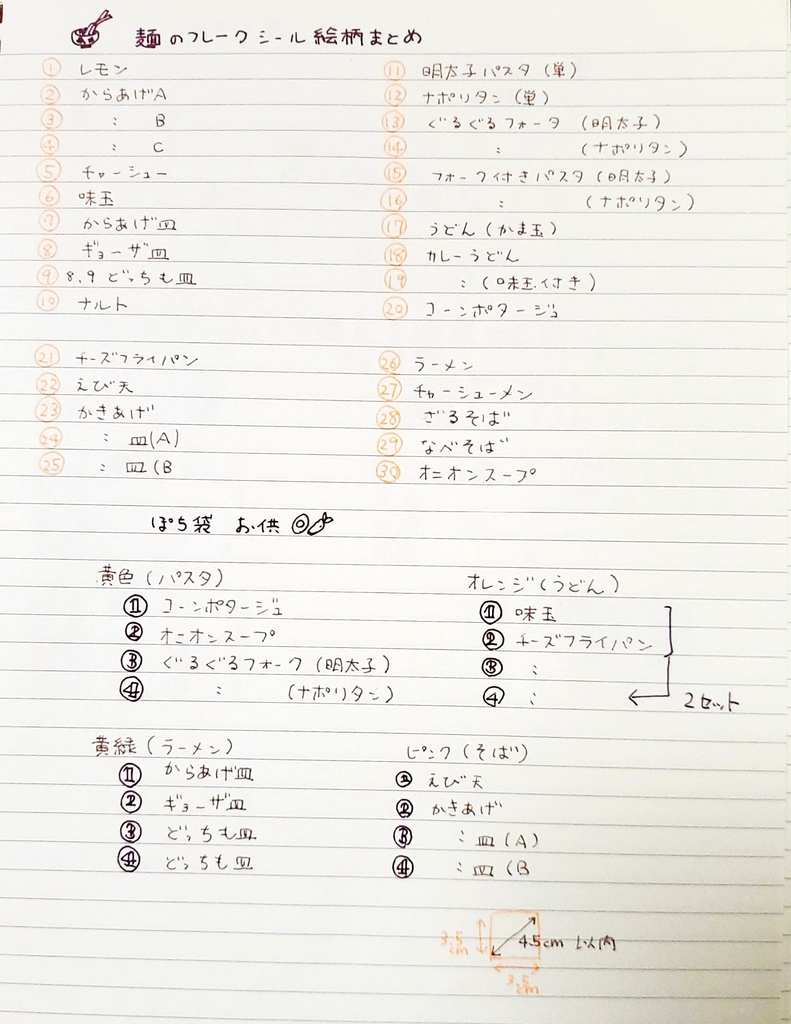 麺のフレークシール絵柄まとめ
① レモン
② からあげA
③ 〃 B
④ 〃 C
⑤ チャーシュー
⑥ 味玉
⑦ からあげ皿
⑧ ギョーザ皿
⑨ 8.9 どっちも皿
⑩ ナルト
⑪ 明太子パスタ（単）
⑫ ナポリタン（単）
⑬ ぐるぐるフォータ（明太子）
⑭ 〃 （ナポリタン）
⑮ フォーク付きパスタ（明太子）
⑯ 〃 （ナポリタン）
⑰ うどん（かま玉）
⑱ カレーうどん
⑲ 〃（味玉付き）
⑳ コーンポタージュ
㉑ チーズフライパン
㉒ えび天
㉓ かきあげ
㉔ 〃 皿(A)
㉕ 〃 皿(B
㉖ ラーメン
㉗ チャーシューメン
㉘ ざるそば
㉙ なべそば
㉚ オニオンスープ
ぽち袋 お供
黄色（パスタ）
① コーンポタージュ
② オニオンスープ
③ ぐるぐるフォーク（明太子）
④ 〃 （ナポリタン）
オレンジ（うどん）
① 味玉
② チーズフライパン
③ 〃
④ 〃 ← 2セット
黄緑（ラーメン）
① からあげ皿
② ギョーザ皿
③ どっちも皿
④ どっちも皿
ピンク（そば）
① えび天
② かきあげ
③ 〃皿（A）
④ 〃皿（B
3.5cm 4.5cm 以内
3.5cm